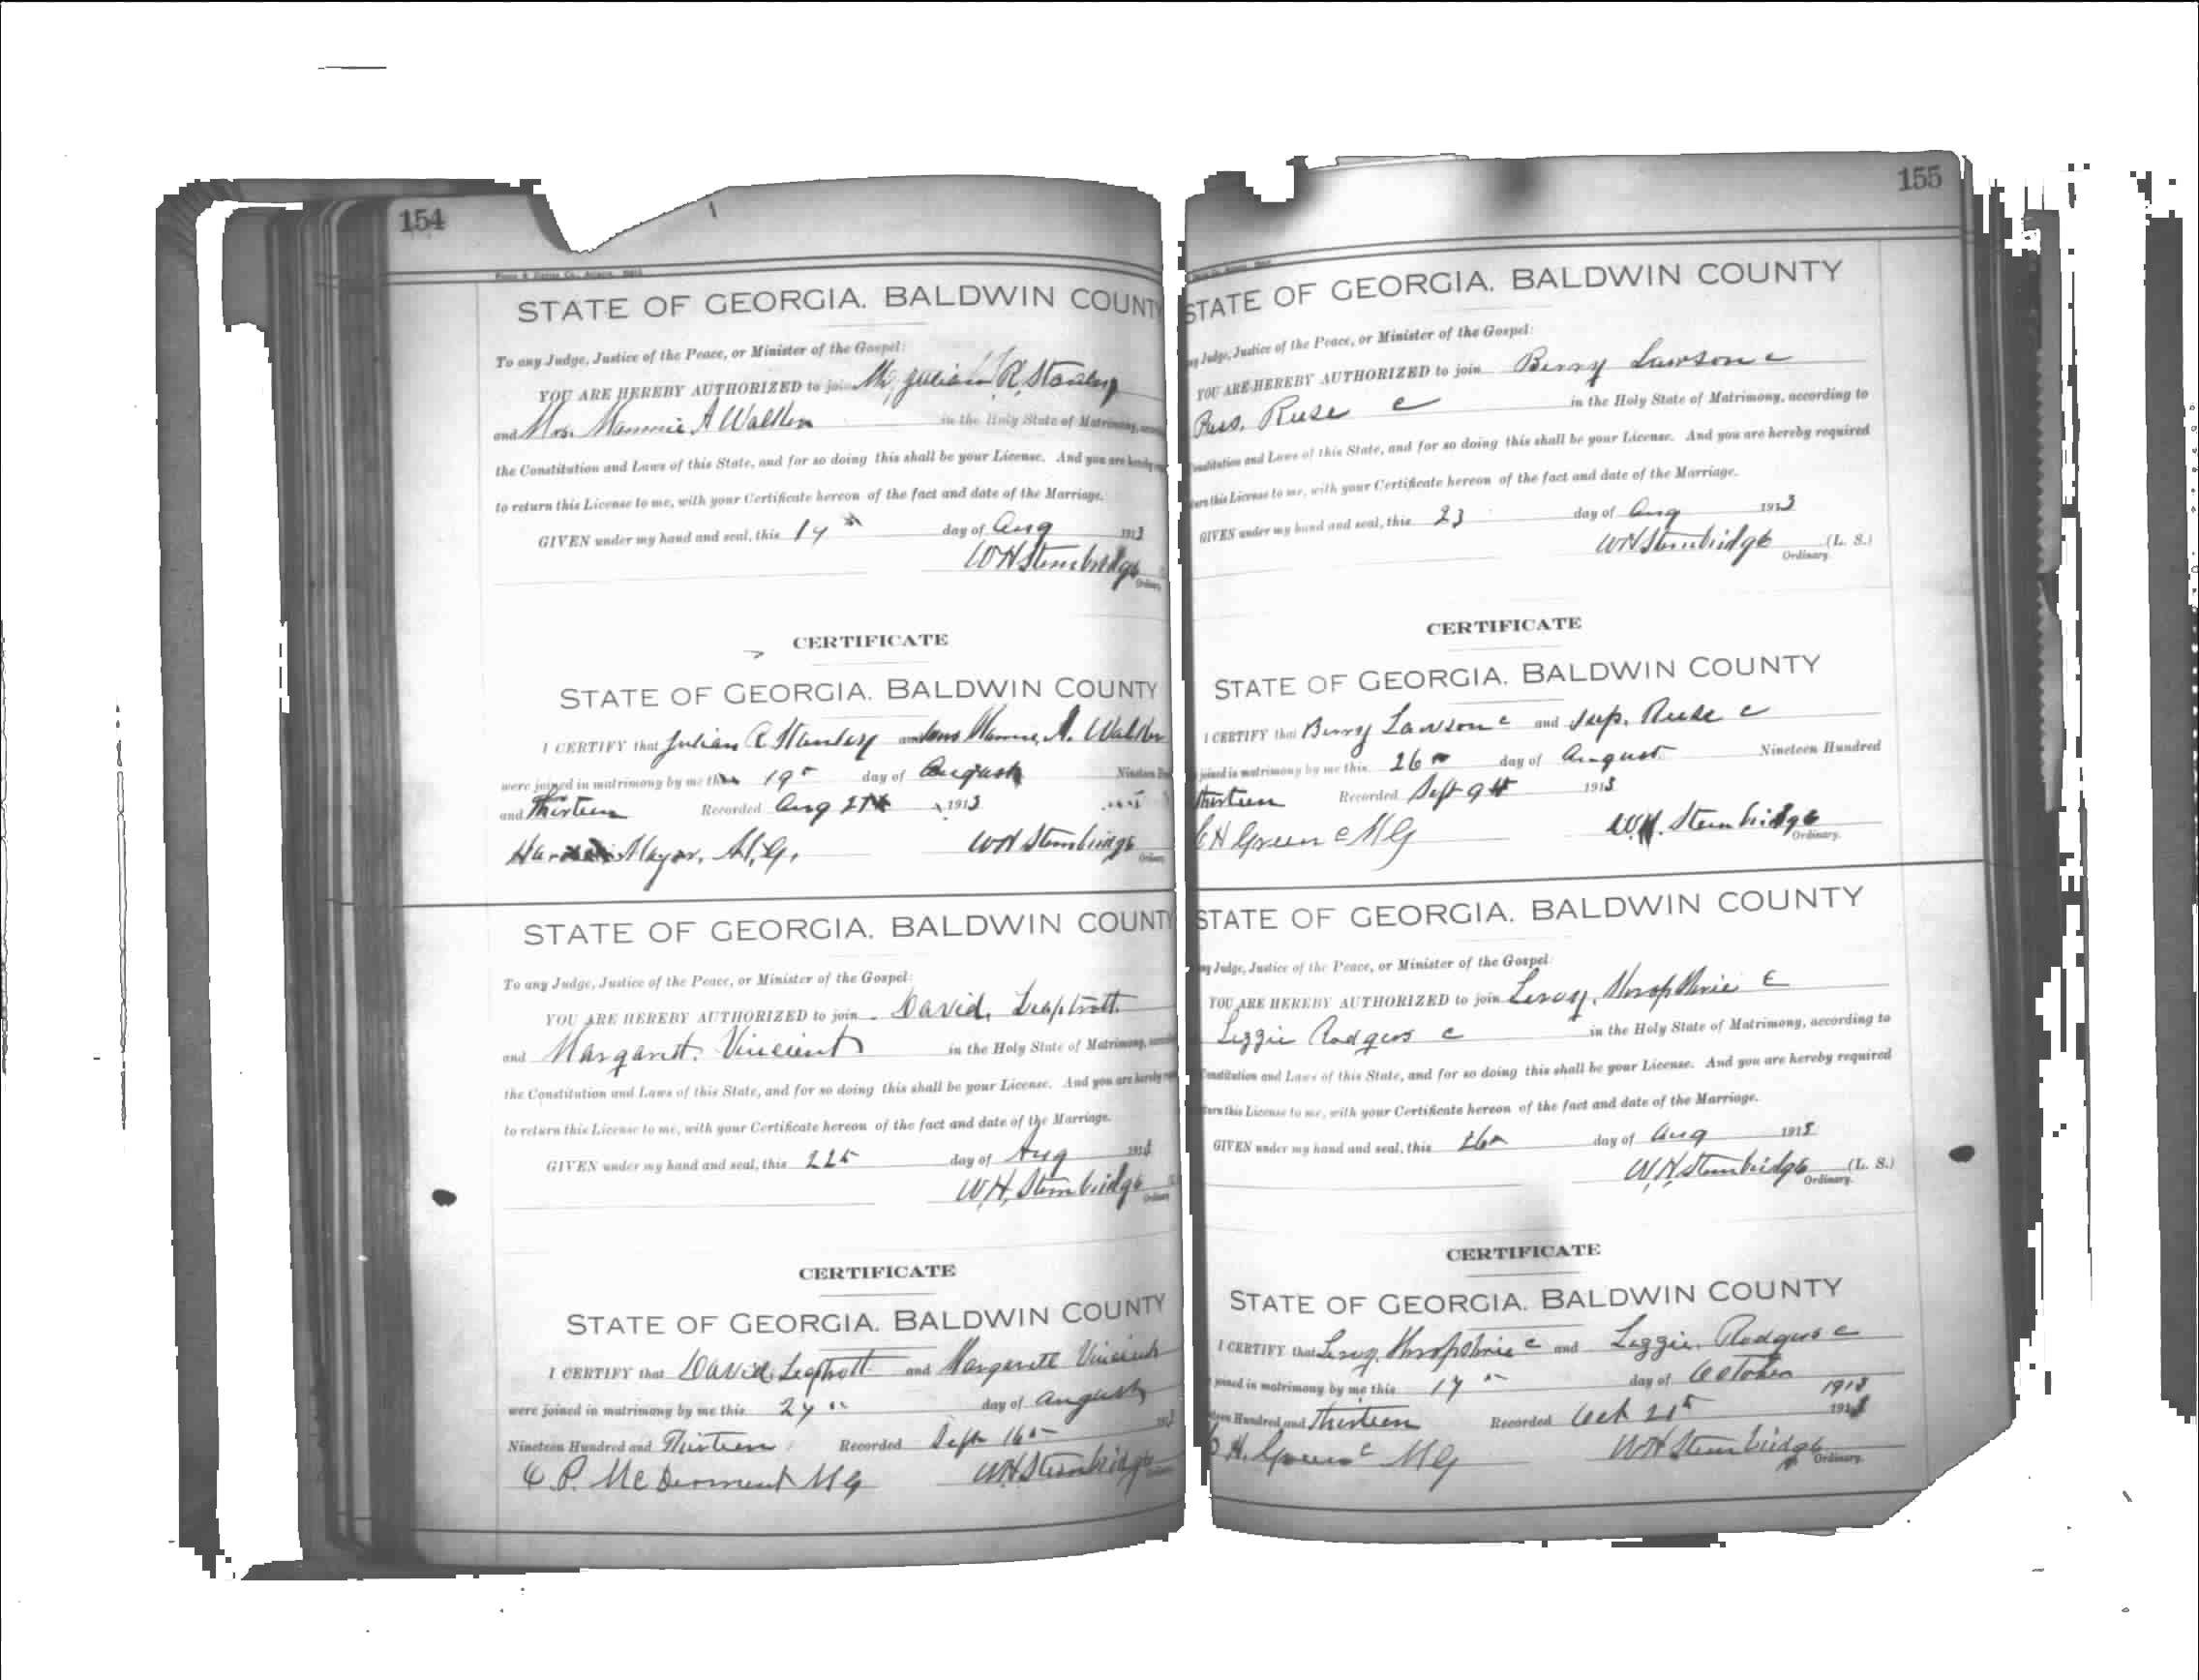 154
STATE OF GEORGIA. BALDWIN COUNTY
To any Judge, Justice of the Peace, or Minister of the Gospel:
YOU ARE HEREBY AUTHORIZED to join Mr Julian R. Stanley
and Mrs. Mammie A Walker in the Holy State of Matrimony,
the Constitution and Laws of this State, and for so doing this shall be your License. And you are hereby
to return this License to me, with your Certificate hereon of the fact and date of the Marriage.
GIVEN under my hand and seal, this day of Aug 1913
W H Stembridge
Ordinary
CERTIFICATE
STATE OF GEORGIA. BALDWIN COUNTY
I CERTIFY that Julian R Stanley and Mammie A. Walker
were joined in matrimony by me this 19 day of August Nineteen
and Thirteen Recorded Aug 1913
Mayor, M.G. W H Stembridge
Ordinary
STATE OF GEORGIA. BALDWIN COUNTY
To any Judge, Justice of the Peace, or Minister of the Gospel:
YOU ARE HEREBY AUTHORIZED to join David, Leaptrott.
and Margarett. Vincient in the Holy State of Matrimony,
the Constitution and Laws of this State, and for so doing this shall be your License. And you are hereby
to return this License to me, with your Certificate hereon of the fact and date of the Marriage.
GIVEN under my hand and seal, this day of Aug 1913
W, H, Stembridge
Ordinary
CERTIFICATE
STATE OF GEORGIA. BALDWIN COUNTY
I CERTIFY that David Leaptrott and Margarett Vincient
were joined in matrimony by me this 24 day of August
Nineteen Hundred and Thirteen Recorded Sept 16 1913
P. McDerment M G W H Stembridge
155
STATE OF GEORGIA. BALDWIN COUNTY
Judge, Justice of the Peace, or Minister of the Gospel:
YOU ARE HEREBY AUTHORIZED to join Berry Lawson c
Reese c in the Holy State of Matrimony, according to
Constitution and Laws of this State, and for so doing this shall be your License. And you are hereby required
this License to me, with your Certificate hereon of the fact and date of the Marriage.
GIVEN under my hand and seal, this 23 day of Aug 1913
W H Stembridge (L. S.)
Ordinary.
CERTIFICATE
STATE OF GEORGIA. BALDWIN COUNTY
I CERTIFY that Berry Lawson c and Reese c
joined in matrimony by me this 26 day of August Nineteen Hundred
Thirteen Recorded Sept 9th 1913
H Green c M G W. H. Stembridge
Ordinary.
STATE OF GEORGIA. BALDWIN COUNTY
Judge, Justice of the Peace, or Minister of the Gospel:
YOU ARE HEREBY AUTHORIZED to join Leroy, c
Lizzie Rodgers c in the Holy State of Matrimony, according to
Constitution and Laws of this State, and for so doing this shall be your License. And you are hereby required
this License to me, with your Certificate hereon of the fact and date of the Marriage.
GIVEN under my hand and seal, this 26 day of Aug 1913
W, H, Stembridge (L. S.)
Ordinary.
CERTIFICATE
STATE OF GEORGIA. BALDWIN COUNTY
I CERTIFY that Leroy, c and Lizzie, Rodgers c
joined in matrimony by me this day of October
1913
Hundred and Thirteen Recorded Oct 21 1913
H. Green c M G W H Stembridge
Ordinary.